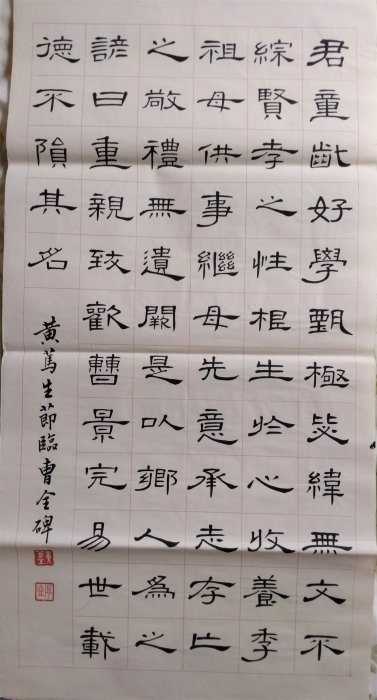 君童齔好學甄極毖緯無文不
綜賢孝之性根生於心收養季
祖母供事繼母先意承志存亡
之敬禮無遺闕是以鄉人為之
諺曰重親致歡曹景完易世載
德不隕其名
黃篤生節臨曹全碑